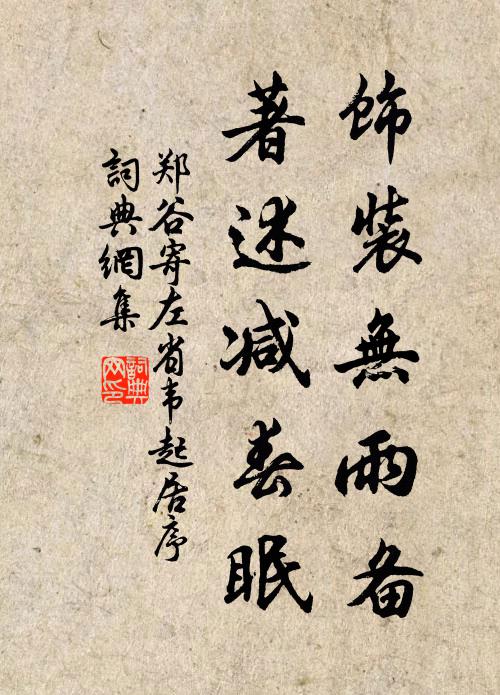 飾装無雨备
著述减春眠
郑谷寄左省韦起居序
詞典網集
詞典网印